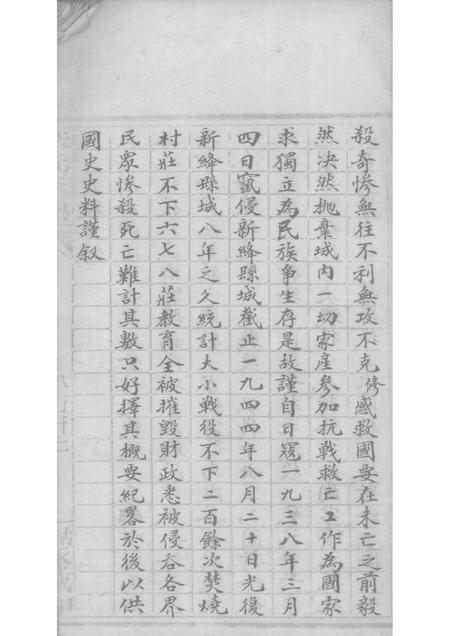 殺奇慘無往不利無攻不克修感救國要在未亡之前毅
然决然抛棄城內一切家產參加抗戰救亡工作為國家
求獨立為民族爭生存是故謹自日寇一九三八年三月
四日竄侵新絳縣城截止一九四四年八月二十日光復
新絳縣城八年之久統計大小戰役不下二百餘次焚燒
村莊不下六七八莊教育全被摧毀財政悉被侵吞各界
民眾慘殺死亡難計其數只好擇其概要紀畧於後以供
國史史料謹叙